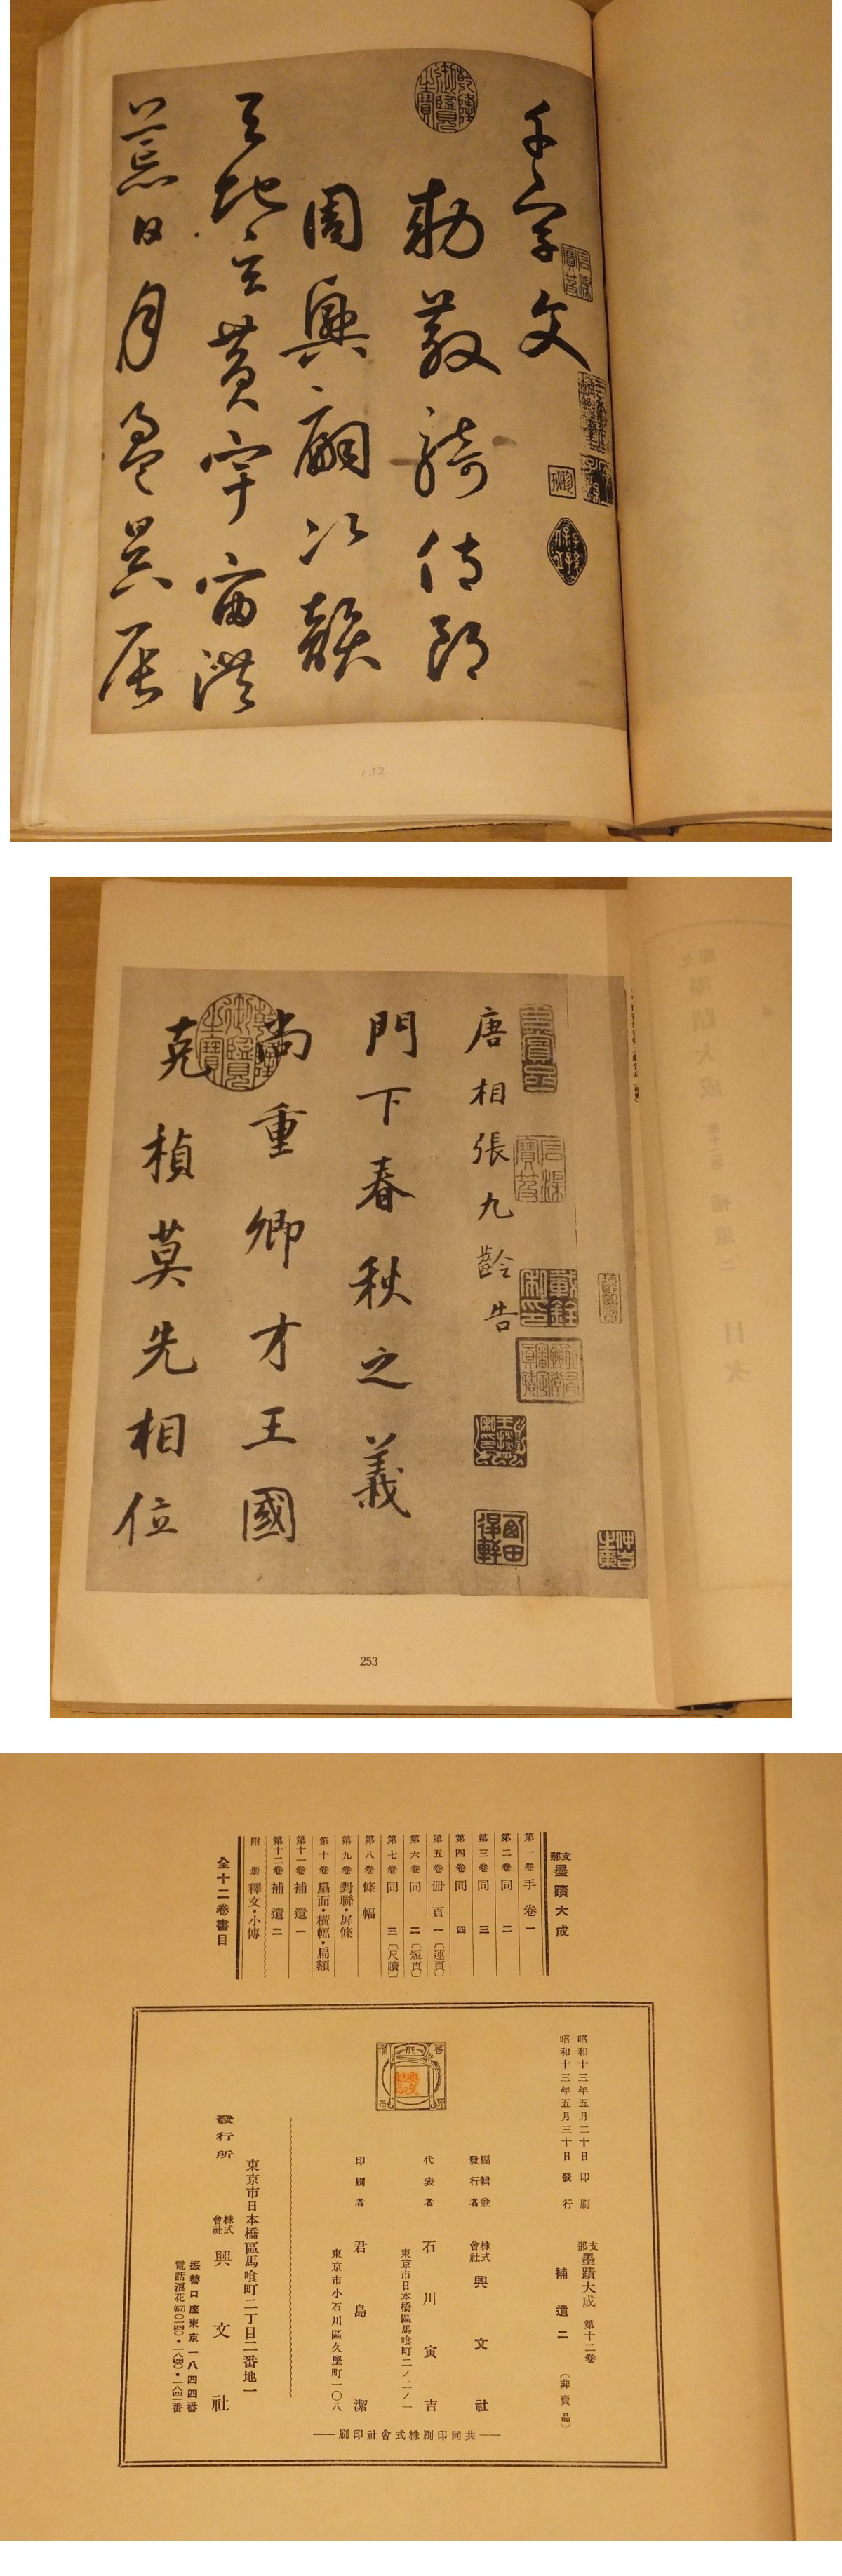 千字文
勅散騎侍郎
周興嗣次韻
天地玄黃宇宙洪
荒日月盈昃辰
唐相張九齡告
門下春秋之義
尚重卿才王國
克楨莫先相位
253
支那墨蹟大成
第一卷 手卷 一
第二卷 同 二
第三卷 同 三
第四卷 同 四
第五卷 册頁 一 〔連頁〕
第六卷 同 二 〔短頁〕
第七卷 同 三 〔尺牘〕
第八卷 條幅
第九卷 對聯・屏條
第十卷 扇面・橫幅・扁額
第十一卷 補遺 一
第十二卷 補遺 二
附册 釋文・小傳
全十二卷書目
昭和十三年五月二十日 印刷
昭和十三年五月三十日 發行
支那墨蹟大成 第十二卷
補遺二 (非賣品)
編輯兼發行者 株式會社 興文社
代表者 石川寅吉
東京市日本橋區馬喰町二ノ二ノ一
印刷者 君島潔
東京市小石川區久堅町一〇八
共同印刷株式會社印刷
東京市日本橋區馬喰町二丁目二番地一
發行所 株式會社 興文社
振替口座東京一八四四番